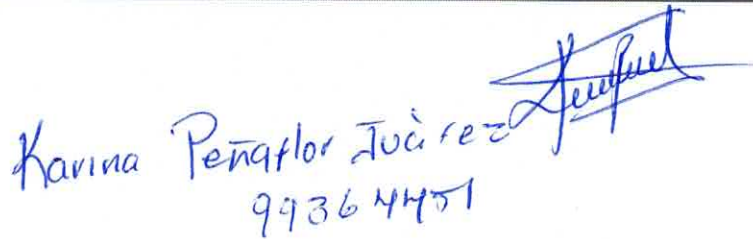 Karina Peñaflor Juàrez
99364451